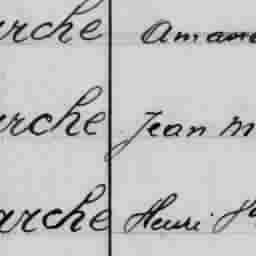 arche Aman
arche Jean M
arche Henri